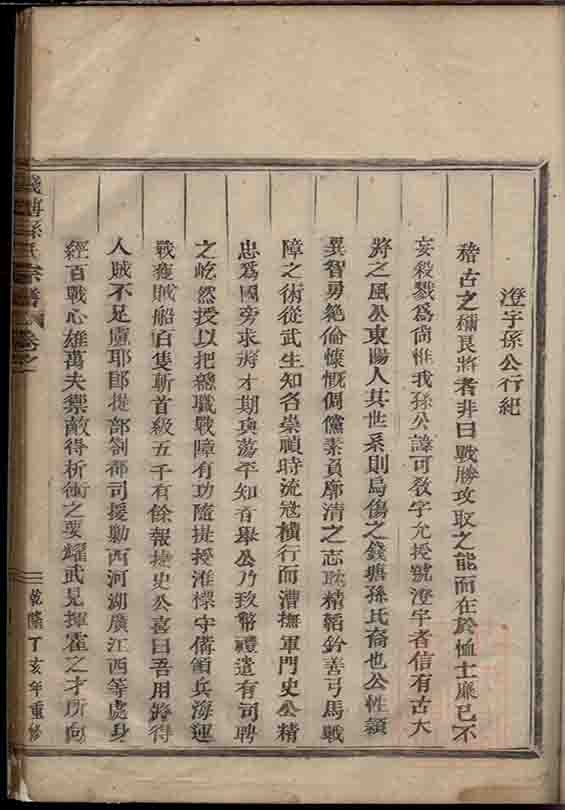 澄宇孫公行紀
稽古之稱良將者非曰戰勝攻取之能而在於恤士廉己不
妄殺戮為尚惟我孫公諱可教字允授號澄宇者信有古大
將之風公東陽人其世系則烏傷之錢塘孫氏裔也公性穎
異智勇絕倫慷慨倜儻素負廓清之志耽精韜鈐善弓馬戰
障之術從武生知名崇禎時流寇橫行而漕撫軍門史公精
忠為國旁求將才期奐蕩平知音舉公乃致幣禮遣有司聘
之屹然授以把總職戰障有功隨提授淮標守備領兵海運
戰獲賊船百隻斬首級五千有餘報捷史公喜曰吾用將得
人賊不足慮耶即提部劄都司援勦西河湖廣江西等處身
經百戰心雄萬夫禦敵得折衝之要耀武見揮霍之才所向
孫氏宗譜 卷之一
乾隆丁亥年重修